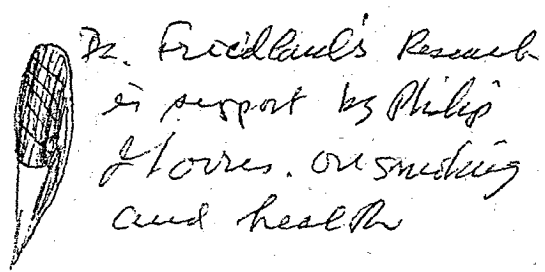 Dr. Friedland's Research
is support by Philip
Morris. on smoking
and health